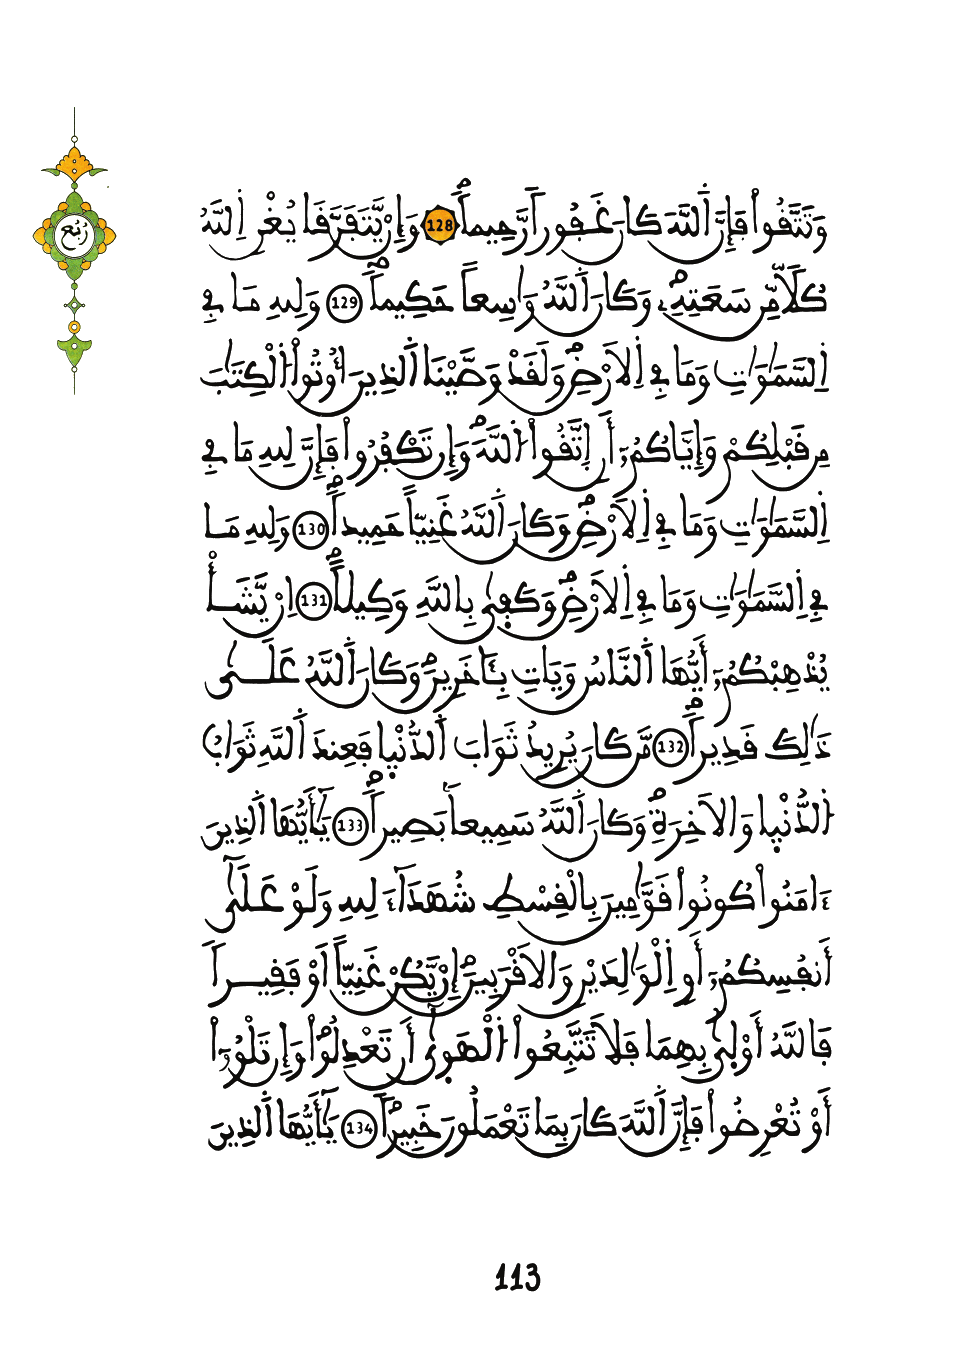 رُبُع
وَتَتَّقُواْ فَإِنَّ اَللَّهَ كَانَ غَفُوراٗ رَّحِيماٗۖ 128 وَإِنْ يَّتَفَرَّقَا يُغْنِ اِللَّهُ
كُلّاٗ مِّن سَعَتِهِۦۖ وَكَانَ اَللَّهُ وَٰسِعاً حَكِيماٗۖ 129 وَلِلهِ مَا فِے
اِلسَّمَٰوَٰتِ وَمَا فِے اِلَارْضِۖ وَلَقَدْ وَصَّيْنَا اَلذِينَ أُوتُواْ اُلْكِتَٰبَ
مِن قَبْلِكُمْ وَإِيَّاكُمُۥٓ أَنِ اِتَّقُواْ اُللَّهَۖ وَإِن تَكْفُرُواْ فَإِنَّ لِلهِ مَا فِے
اِلسَّمَٰوَٰتِ وَمَا فِے اِلَارْضِۖ وَكَانَ اَللَّهُ غَنِيّاً حَمِيداٗۖ 130 وَلِلهِ مَا
فِے اِلسَّمَٰوَٰتِ وَمَا فِے اِلَارْضِۖ وَكَفَيٰ بِاللَّهِ وَكِيلاًۖ 131 اِنْ يَّشَأْ
يُذْهِبْكُمُۥٓ أَيُّهَا اَلنَّاسُ وَيَاتِ بِـَٔاخَرِينَۖ وَكَانَ اَللَّهُ عَلَيٰ
ذَٰلِكَ قَدِيراٗۖ 132 مَّن كَانَ يُرِيدُ ثَوَابَ اَلدُّنْيا فَعِندَ اَللَّهِ ثَوَابُ
اُلدُّنْيا وَالَاخِرَةِۖ وَكَانَ اَللَّهُ سَمِيعاَۢ بَصِيراٗۖ 133 يَٰٓأَيُّهَا اَلذِينَ
ءَامَنُواْ كُونُواْ قَوَّٰمِينَ بِالْقِسْطِ شُهَدَآءَ لِلهِ وَلَوْ عَلَيٰٓ
أَنفُسِكُمُۥٓ أَوِ اِلْوَٰلِدَيْنِ وَالَاقْرَبِينَۖ إِنْ يَّكُنْ غَنِيّاً اَوْ فَقِيراٗ
فَاللَّهُ أَوْلَيٰ بِهِمَا فَلَا تَتَّبِعُواْ اُلْهَوَيٰٓ أَن تَعْدِلُواْۖ وَإِن تَلْوُۥٓاْ
أَوْ تُعْرِضُواْ فَإِنَّ اَللَّهَ كَانَ بِمَا تَعْمَلُونَ خَبِيراٗۖ 134 يَٰٓأَيُّهَا اَلذِينَ
113